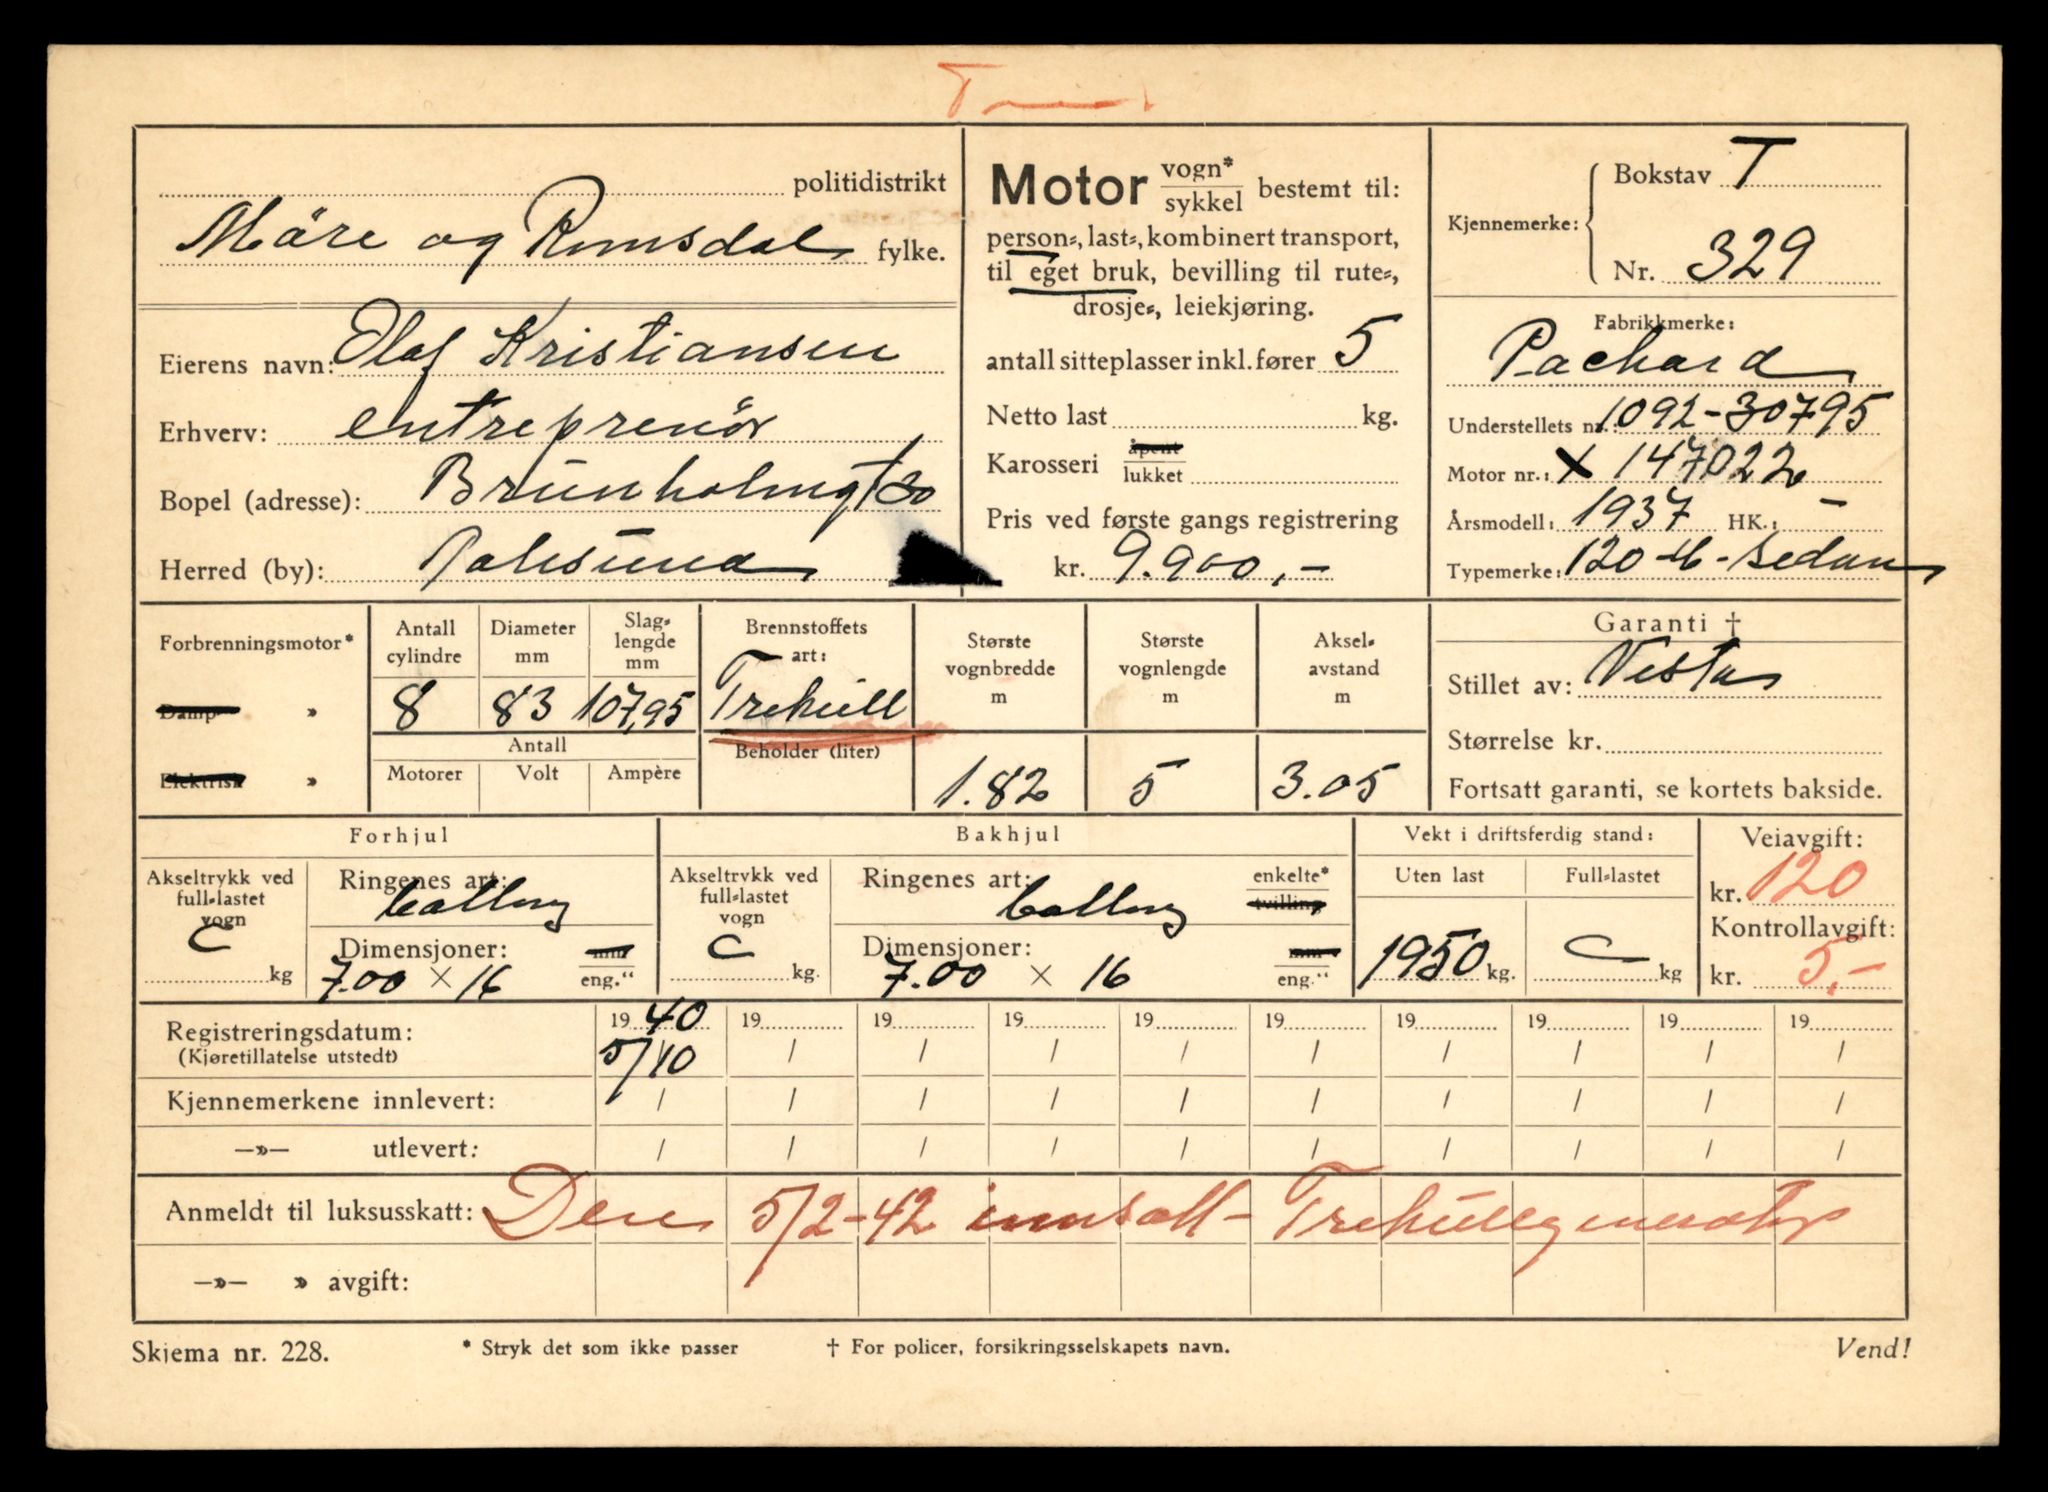 politidistrikt
Möre og Romsdal fylke.
Eierens navn: Olaf Kristiansen
Erhverv: entreprenör
Bopel (adresse): Brunholmgt 30
Herred (by): Aalesund
Motor vogn* / sykkel bestemt til:
person-, last-, kombinert transport,
til eget bruk, bevilling til rute-,
drosje-, leiekjøring.
antall sitteplasser inkl. fører 5
Netto last kg.
Karosseri åpent / lukket
Pris ved første gangs registrering
kr. 9.900,-
Kjennemerke: Bokstav T
Nr. 329
Fabrikkmerke:
Packard
Understellets nr.: 1092-30795
Motor nr.: X 147022
Årsmodell: 1937 HK.: –
Typemerke: 120 - Sedan
Forbrenningsmotor*
Damp- »
Elektrisk »
Antall cylindre 8
Diameter mm 83
Slag-lengde mm 107,95
Antall
Motorer Volt Ampère
Brennstoffets art:
Trekull
Beholder (liter)
Største vognbredde m 1.82
Største vognlengde m 5
Aksel-avstand m 3.05
Garanti †
Stillet av: Vesta
Størrelse kr.
Fortsatt garanti, se kortets bakside.
Forhjul
Akseltrykk ved full-lastet vogn kg
Ringenes art: ballong
Dimensjoner: mm / eng."
7.00 × 16
Bakhjul
Akseltrykk ved full-lastet vogn kg.
Ringenes art: ballong enkelte* / tvilling
Dimensjoner: mm / eng."
7.00 × 16
Vekt i driftsferdig stand:
Uten last Full-lastet
1950 kg. kg
Veiavgift:
kr. 120
Kontrollavgift:
kr. 5.-
Registreringsdatum: 19 40 19 19 19 19 19 19 19 19 19
(Kjøretillatelse utstedt) 5/10 / / / / / / / / /
Kjennemerkene innlevert: / / / / / / / / / /
—»— utlevert: / / / / / / / / / /
Anmeldt til luksusskatt: Den 5/2-42 innsatt - Trekullgenerator
—»— » avgift:
Skjema nr. 228. * Stryk det som ikke passer † For policer, forsikringsselskapets navn. Vend!